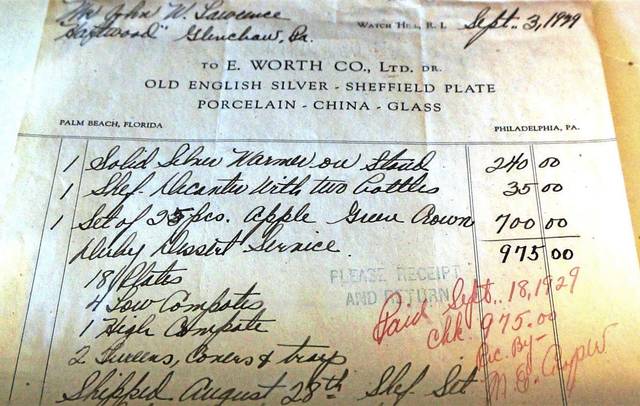 Mr John W. Lawrence
"Hartwood" Glenshaw, Pa.
WATCH HILL, R. I. Sept. 3, 1929
TO E. WORTH CO., LTD. DR.
OLD ENGLISH SILVER - SHEFFIELD PLATE
PORCELAIN - CHINA - GLASS
PALM BEACH, FLORIDA PHILADELPHIA, PA.
1 Solid Silver Warmer on Stand 240 00
1 Shef. Decanter With two bottles 35 00
1 Set of 25 pcs. Apple Green Crown 700 00
Derby Dessert Service. 975 00
18 Plates
4 Low Compotes
1 High Compote
2 Tureens, Covers & trays
Shipped August 28th Shef. Set
PLEASE RECEIPT
AND RETURN
Paid Sept. 18, 1929
Chk. 975.00
Rec. By-